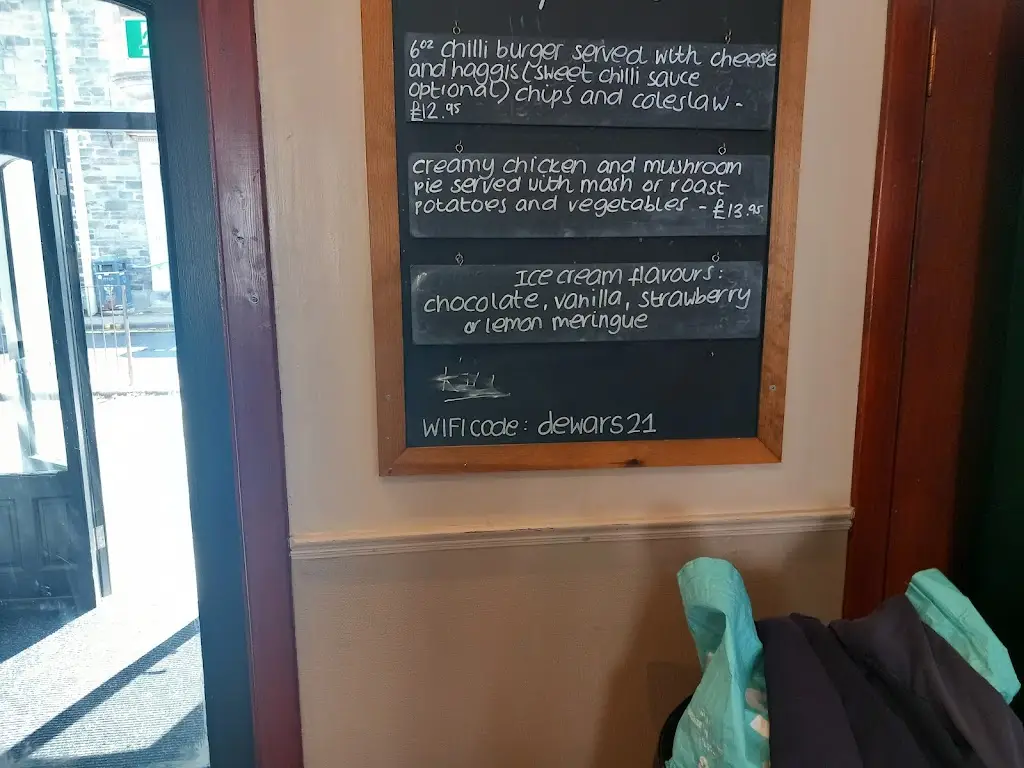 6oz chilli burger served with cheese
and haggis (sweet chilli sauce
optional) chips and coleslaw -
£12.95
creamy chicken and mushroom
pie served with mash or roast
potatoes and vegetables - £13.95
Ice cream flavours:
chocolate, vanilla, strawberry
or lemon meringue
WIFI code: dewars21